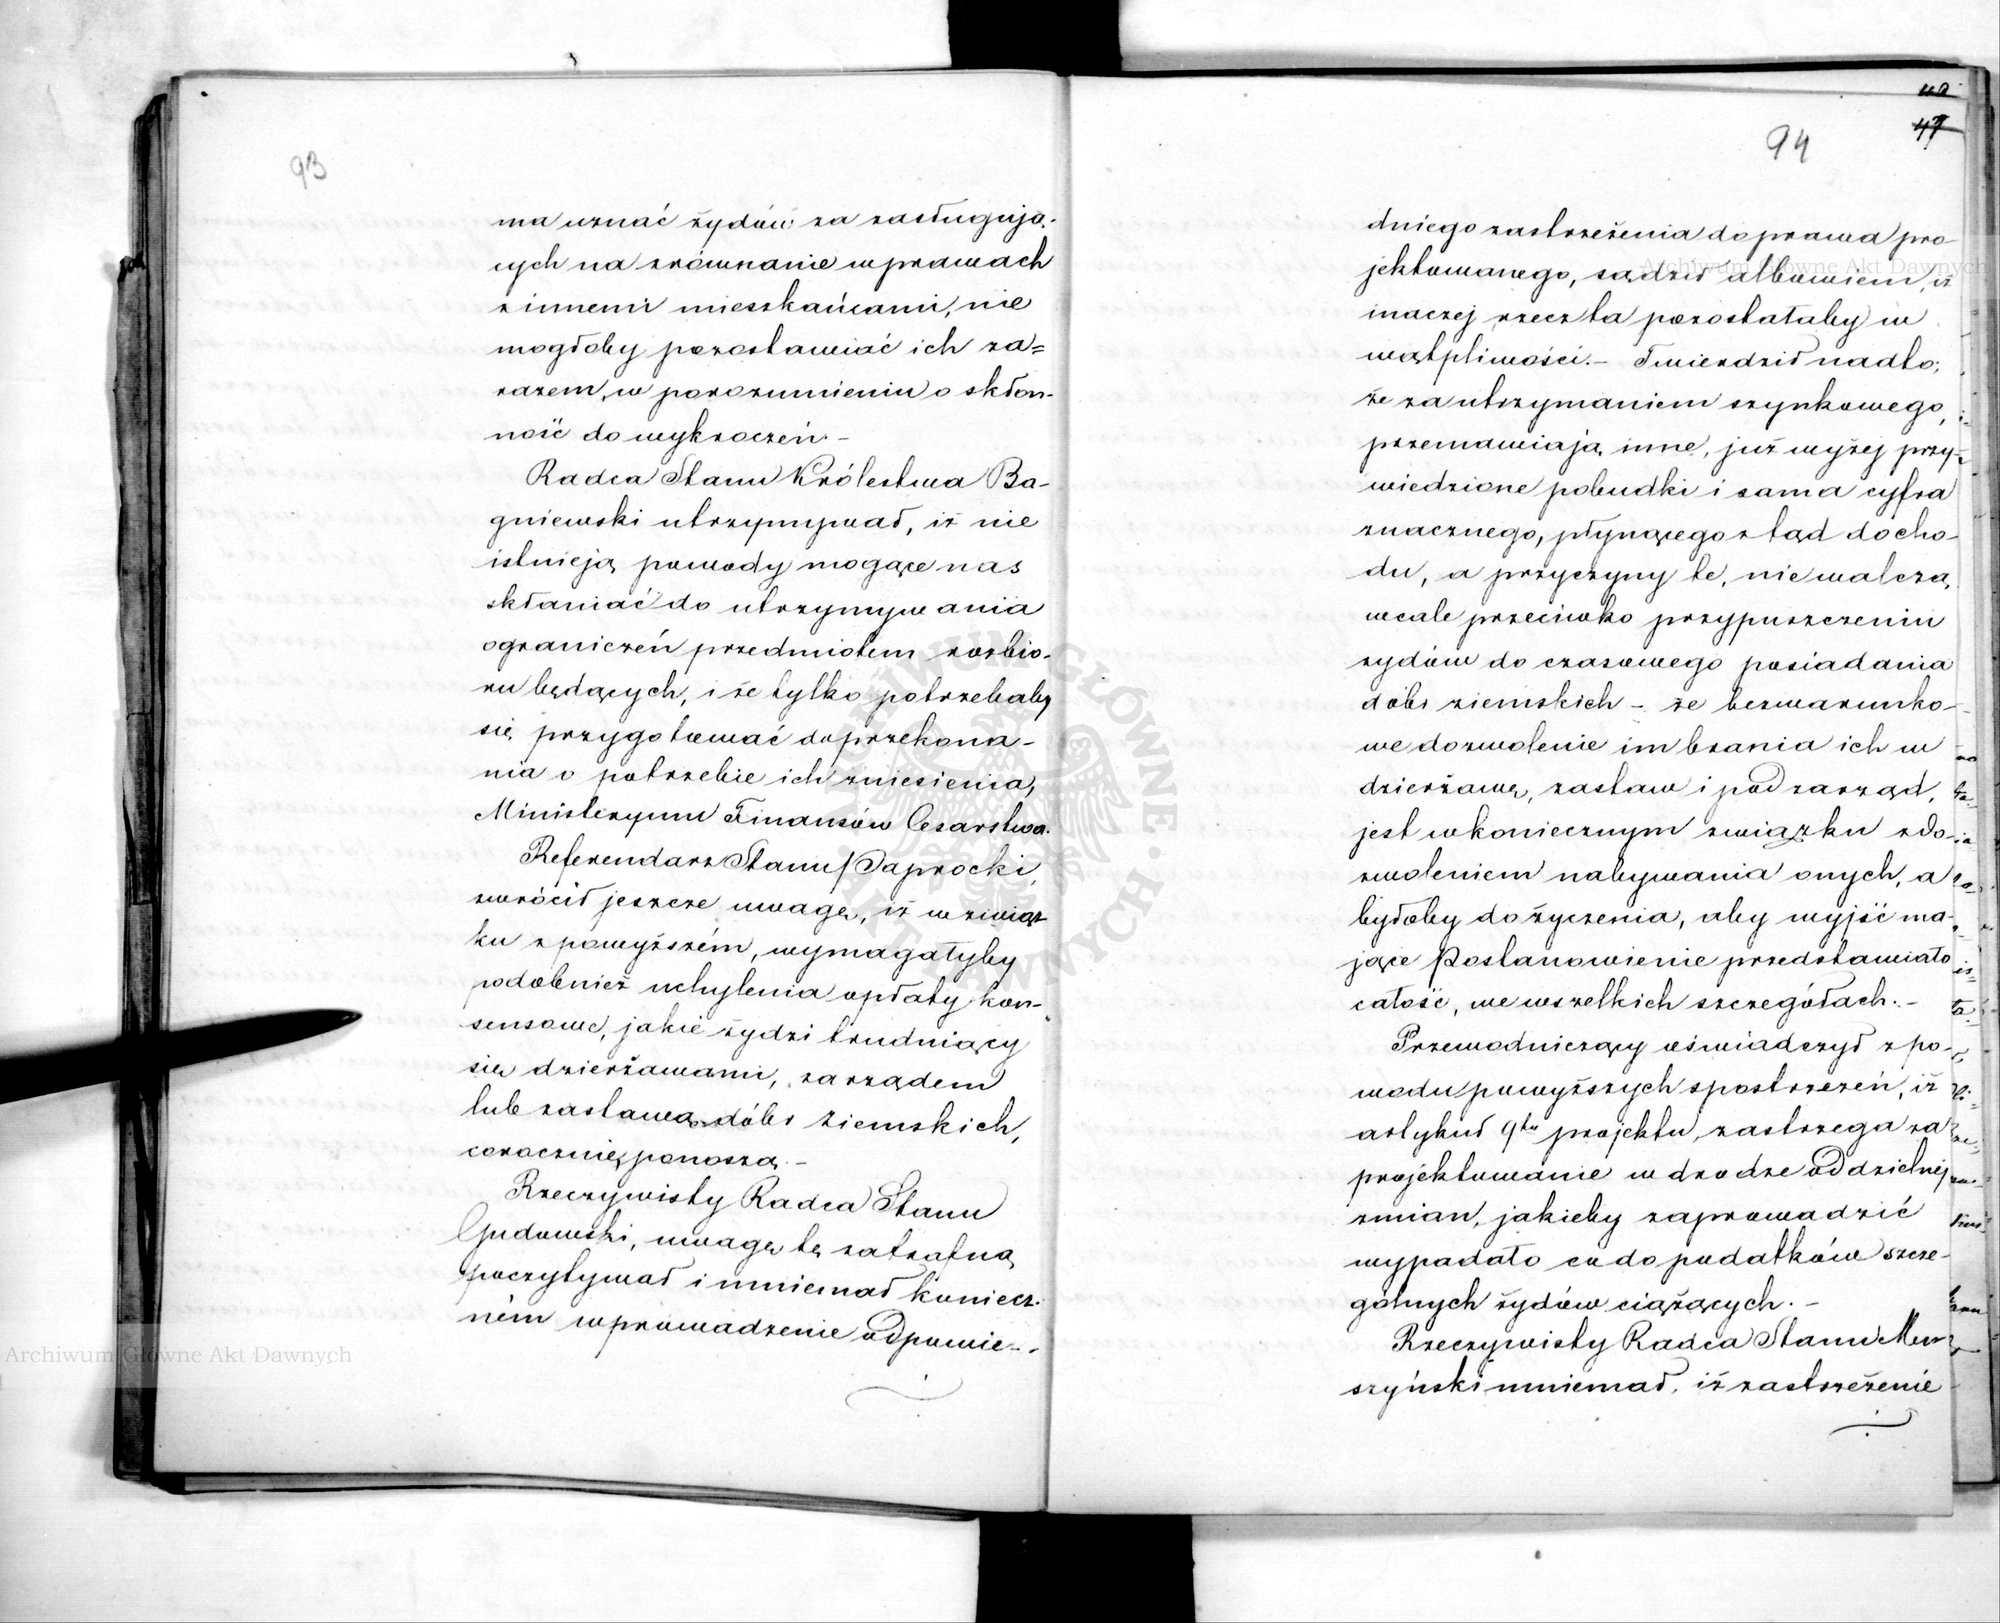 93
ma uznać żydów za zasługują-
cych na zrównanie w prawach
z innemi mieszkańcami, nie
mogłoby pozostawiać ich za=
razem, w porozumieniu o skłon-
ność do wykroczeń. –
Radca Stanu Królestwa Ba-
gniewski utrzymywał, iż nie
istnieją powody mogące nas
skłaniać do utrzymywania
ograniczeń przedmiotem rozbio-
ru będących, i że tylko potrzebaby
się przygotować do przekona-
nia o potrzebie ich zniesienia,
Ministeryum Finansów Cesarstwa.
Referendarz Stanu Paprocki,
zwrócił jeszcze uwagę, iż w związ-
ku z powyższém, wymagałyby
podobnież uchylenia opłaty kon-
sensowe, jakie żydzi trudniący
się dzierżawami, zarządem
lub zastawą dóbr ziemskich,
corocznie ponoszą. –
Rzeczywisty Radca Stanu
Gudowski, uwagę tę za trafną
poczytywał i mniemał koniecz-
ném wprowadzenie odpowie-
94
47
dniego zastrzeżenia do prawa pro-
jektowanego, sądził albowiem, iż
inaczej rzecz ta pozostałaby w
wątpliwości. – Twierdził nadto,
że za utrzymaniem szynkowego,
przemawiają inne, już wyżej przy-
wiedzione pobudki i sama cyfra
znacznego, płynącego ztąd docho-
du, a przyczyny te, nie walczą,
wcale przeciwko przypuszczeniu
żydów do czasowego posiadania
dóbr ziemskich – że bezwarunko-
we dozwolenie im brania ich w
dzierżawę, zastaw i pod zarząd,
jest w koniecznym związku z do-
zwoleniem nabywania onych, a
byłoby do życzenia, aby wyjść ma-
jące Postanowienie przedstawiało
całość, we wszelkich szczegółach. –
Przewodniczący oświadczył z po-
wodu powyższych spostrzeżeń, iż
artykuł 9ty projektu, zastrzega za-
projektowanie w drodze oddzielnej
zmian, jakieby zaprowadzić
wypadało co do podatków szcze-
gólnych żydów ciążących. –
Rzeczywisty Radca Stanu Mu-
szyński mniemał, iż zastrzeżenie
Archiwum Główne Akt Dawnych
Archiwum Główne Akt Dawnych
ARCHIWUM GŁÓWNE AKT DAWNYCH